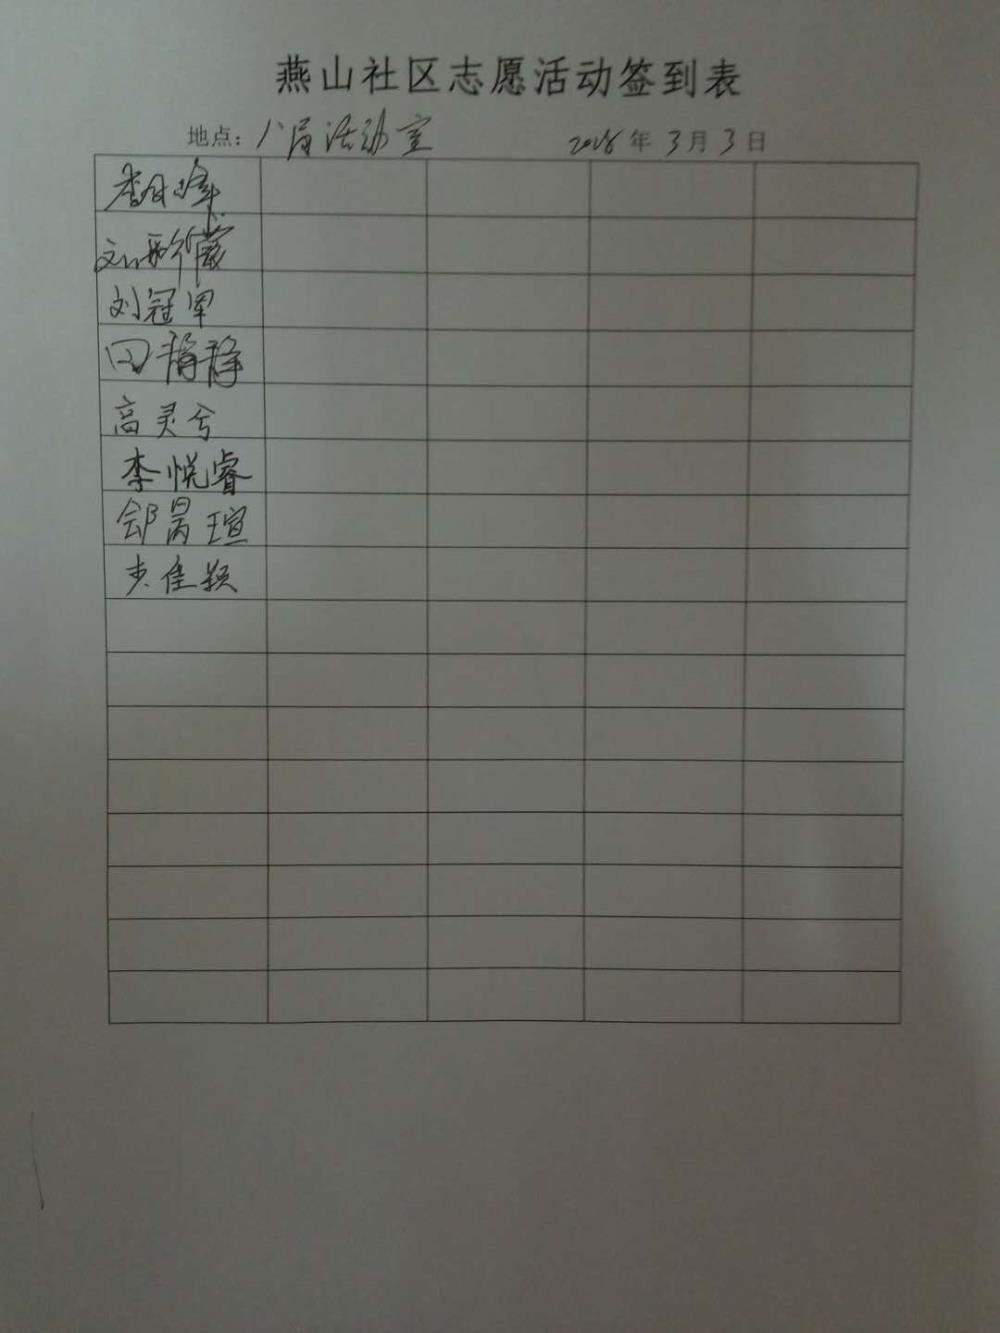 燕山社区志愿活动签到表
地点：八局活动室 2018年3月3日
刘彩薇
刘冠军
田静静
高灵兮
李悦睿
郐昺瑄
佳颖